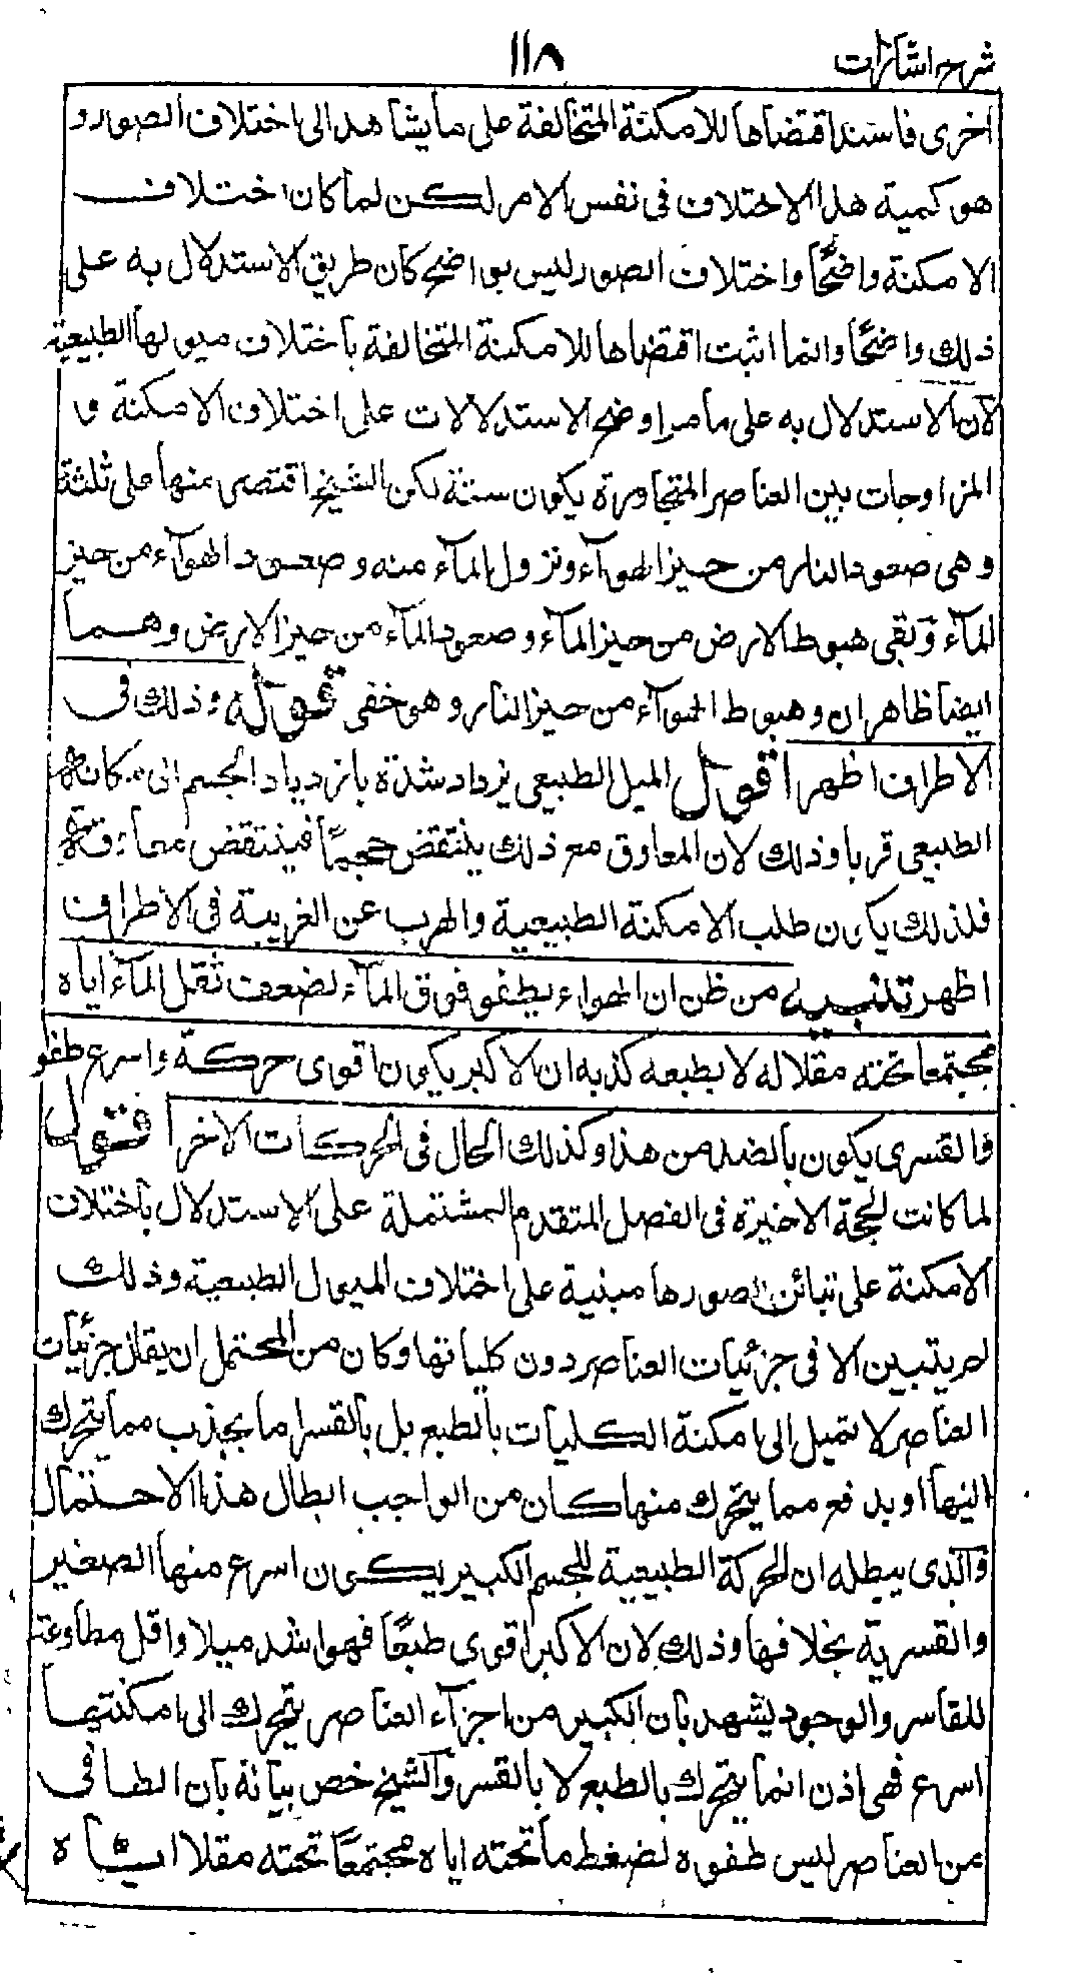 شرح اشارات
١١٨
اخرى فاسند اقتضاها للامكنة المتخالفة على ما يشاهد الى اختلاف الصور و
هو كمية هذا الاختلاف فى نفس الامر لكن لما كان اختلاف
الامكنة واضحًا واختلاف الصور ليس بواضح كان طريق الاستدلال به على
ذلك واضحًا وانما اثبت اقتضاها للامكنة المتخالفة باختلاف ميولها الطبيعية
لان الاستدلال به على ما مر اوضح الاستدلالات على اختلاف الامكنة و
المزاوجات بين العناصر المتجاورة يكون ستة لكن الشيخ اقتصر منها على ثلثة
وهى صعود النار من حيز الهوآء ونزول المآء منه وصعود الهوآء من حيز
المآء وبقى هبوط الارض من حيز المآء وصعود المآء من حيز الارض وهما
ايضا ظاهران وهبوط الهوآء من حيز النار وهو خفى قوله وذلك فى
الاطراف اظهر اقول الميل الطبيعى يزداد شدة بازدياد الجسم الى مكانه
الطبيعى قربا وذلك لان المعاوق مع ذلك ينتقض حجمًا فينتقض معاوقته
فلذلك يكون طلب الامكنة الطبيعية والهرب عن الغريبة فى الاطراف
اظهر تنبيه من ظن ان الهواء يطفو فوق المآء لضعف ثقل المآء اياه
مجتمعا تحته مقلا له لا بطبعه كذبه ان الاكبر يكون اقوى حركة واسرع طفوا
والقسرى يكون بالضد من هذا وكذلك الحال فى الحركات الاخر اقول
لما كانت الحجة الاخيرة فى الفصل المتقدم المشتملة على الاستدلال باختلاف
الامكنة على تبائن الصورها مبنية على اختلاف الميول الطبيعية وذلك
لم يتبين الا فى جزئيات العناصر دون كلياتها وكان من المحتمل ان يقال جزئيات
العناصر لا تميل الى امكنة الكليات بالطبع بل بالقسر اما بجذب مما يتحرك
اليها او بدفع مما يتحرك منها كان من الواجب ابطال هذا الاحتمال
والذى يبطله ان الحركة الطبيعية للجسم الكبير يكون اسرع منها الصغير
والقسرية بخلافها وذلك لان الاكبر اقوى طبعًا فهو اشد ميلا واقل مطاوعة
للقاسر والوجود يشهد بان الكبير من اجزآء العناصر يتحرك الى امكنتها
اسرع فهى اذن انما يتحرك بالطبع لا بالقسر والشيخ خص بيانه بان الطافى
من العناصر ليس طفوه لضغط ما تحته اياه مجتمعًا تحته مقلا اياه